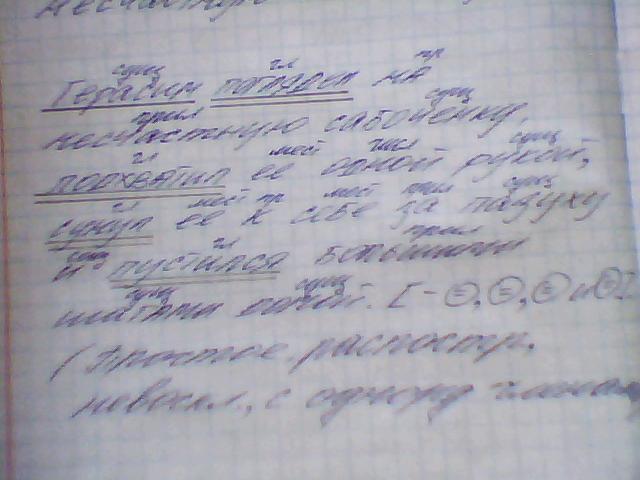 несчастную
сущ гл пр
Герасим поглядел на
прил сущ
несчастную сабочёнку,
гл мест числ сущ
подхватил ее одной рукой,
гл мест пр мест прил сущ
сунул ее к себе за пазуху
гл прил
и пустился большими
сущ сущ
шагами домой. [- =, =, = и =]
(Простое, распостр,
невоскл., с однород членами